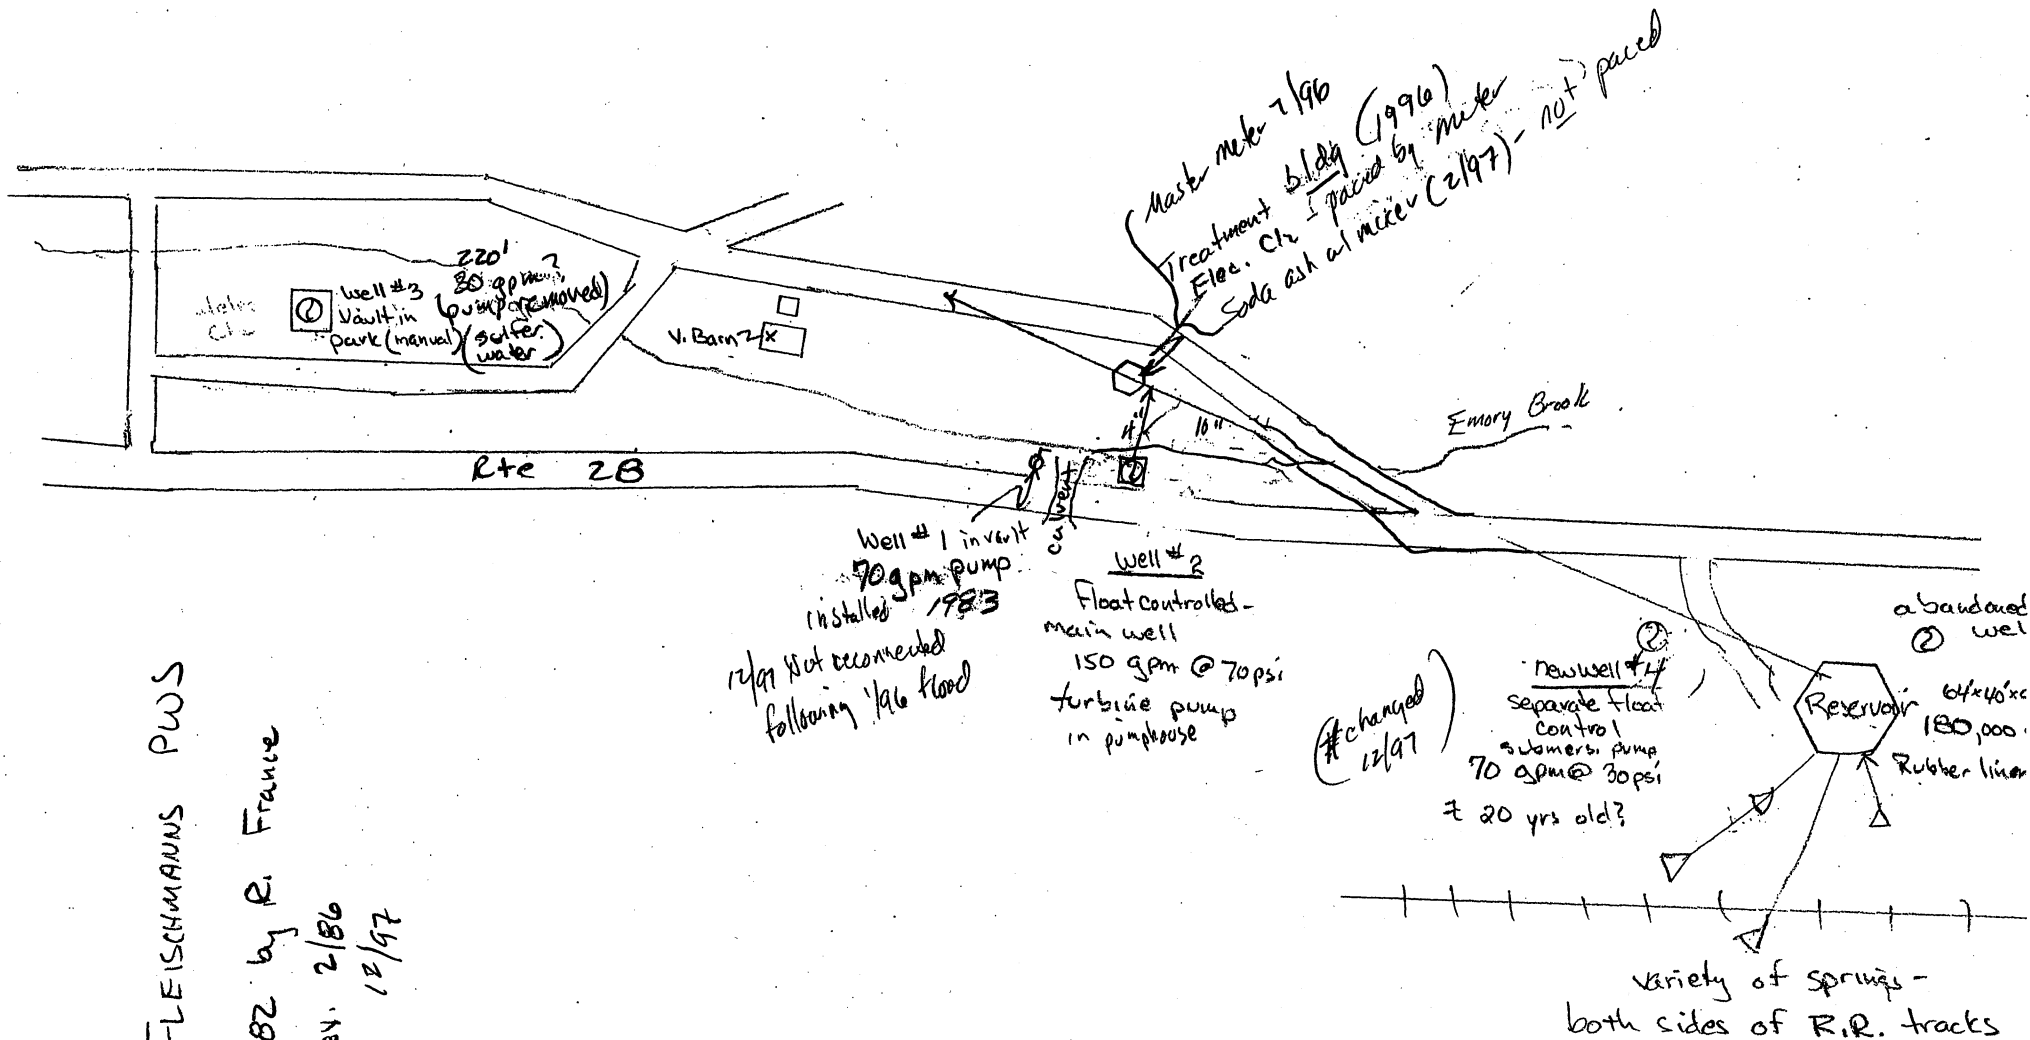 Master meter 2/96
Treatment bldg (1996)
Elec. Cl2 - paced by meter
Soda ash w/ mixer (2/97) - not paced
220'
80 gpm?
(pump removed)
Well #3
Vault in
park (manual)
(sulfer
water)
V. Barn
Emory Brook
4"
10"
Rte 28
culvert
Well #1 in vault
70 gpm pump
installed 1983
12/97 Not reconnected
following 1/96 flood
Well #2
Float controlled -
main well
150 gpm @ 70 psi
turbine pump
in pumphouse
(# changed
12/97)
new well #4
separate float
control
submers. pump
70 gpm @ 30 psi
± 20 yrs old?
abandoned
wel
Reservoir
64'x40'x
180,000
Rubber liner
variety of springs -
both sides of R.R. tracks
FLEISCHMANNS PWS
82 by R. France
ev. 2/86
12/97